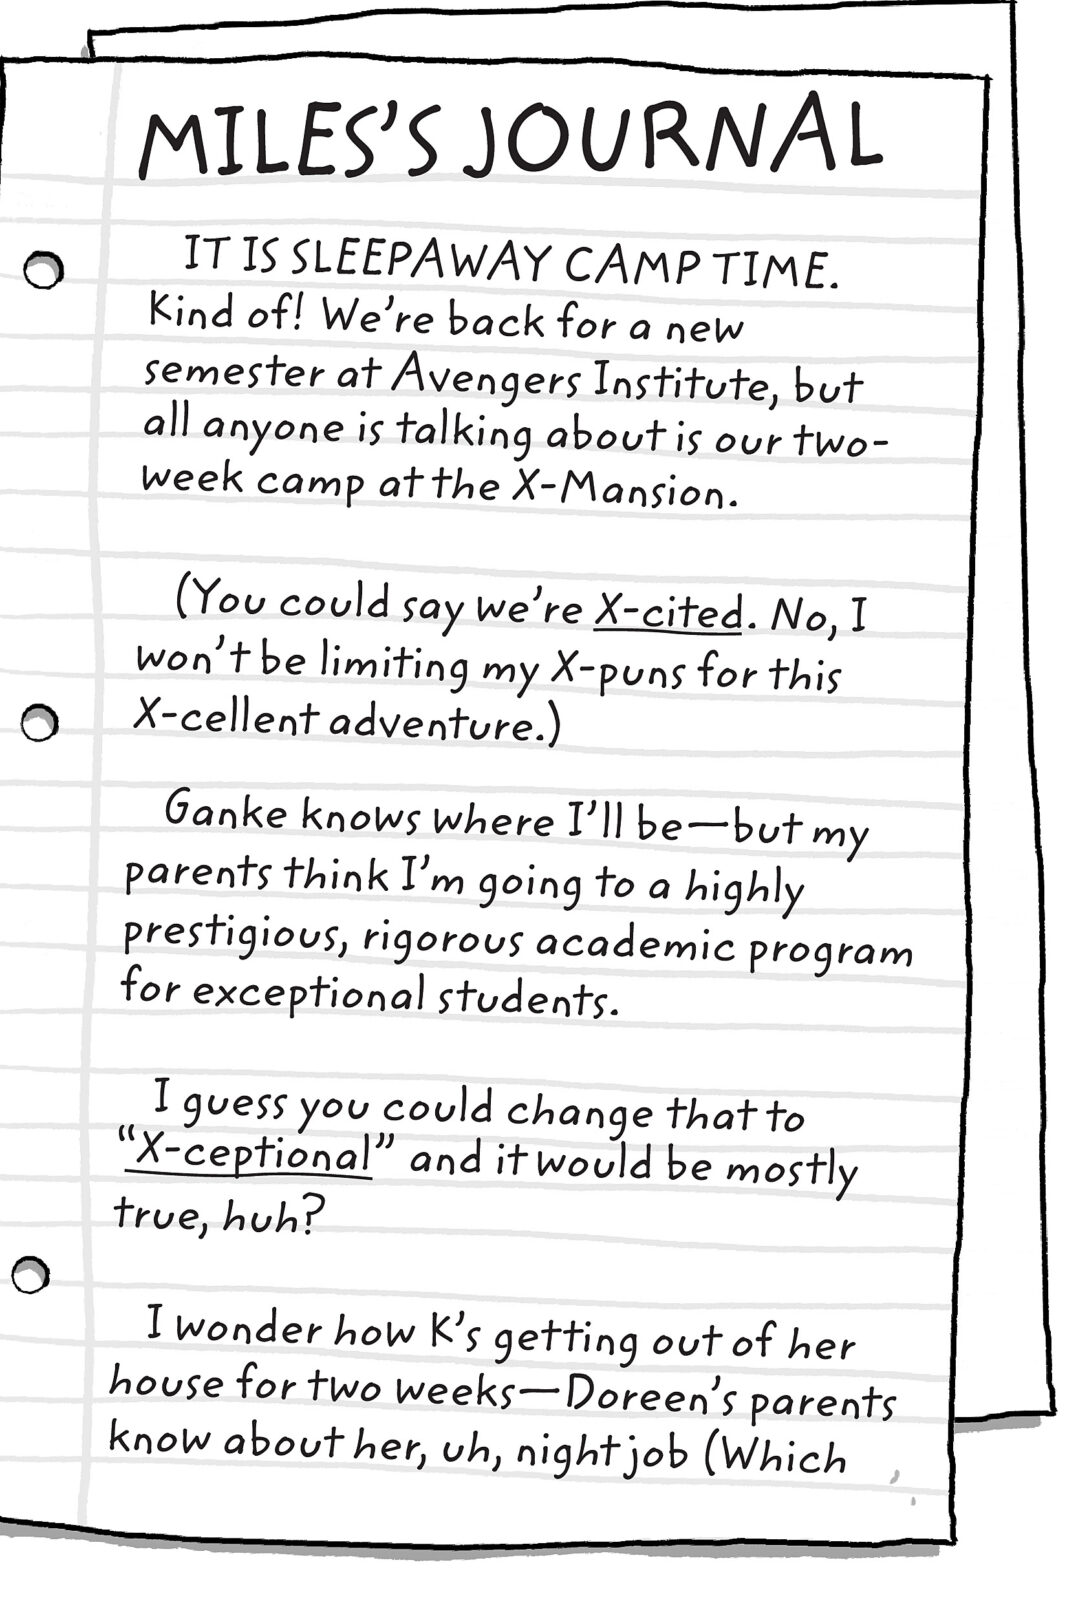 MILES'S JOURNAL
IT IS SLEEPAWAY CAMP TIME.
Kind of! We're back for a new
semester at Avengers Institute, but
all anyone is talking about is our two-
week camp at the X-Mansion.
(You could say we're X-cited. No, I
won't be limiting my X-puns for this
X-cellent adventure.)
Ganke knows where I'll be—but my
parents think I'm going to a highly
prestigious, rigorous academic program
for exceptional students.
I guess you could change that to
“X-ceptional” and it would be mostly
true, huh?
I wonder how K's getting out of her
house for two weeks—Doreen's parents
know about her, uh, night job (Which